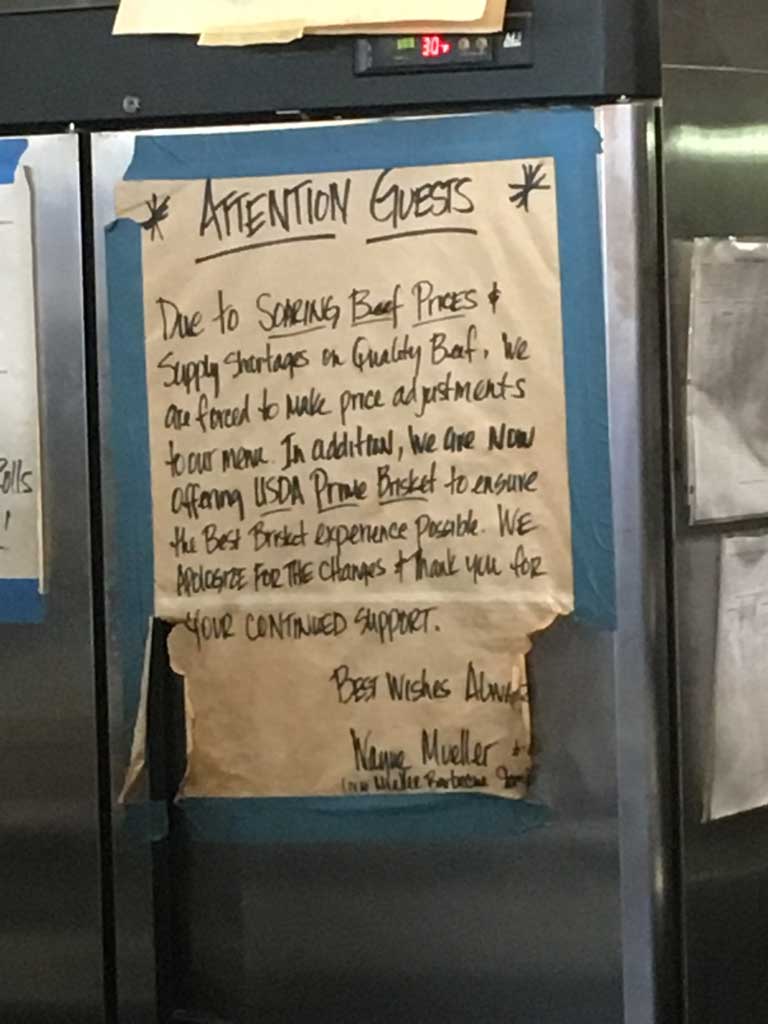 30°F
* ATTENTION GUESTS *
Due to SOARING Beef PRICES &
Supply Shortages on Quality Beef, We
are forced to make price adjustments
to our menu. In addition, We are Now
offering USDA Prime Brisket to ensure
the Best Brisket experience Possible. WE
APOLOGIZE FOR THE CHANGES & Thank you for
YOUR CONTINUED SUPPORT.
BEST WISHES ALWAYS
Wayne Mueller +
Louie Mueller Barbecue
olls
!